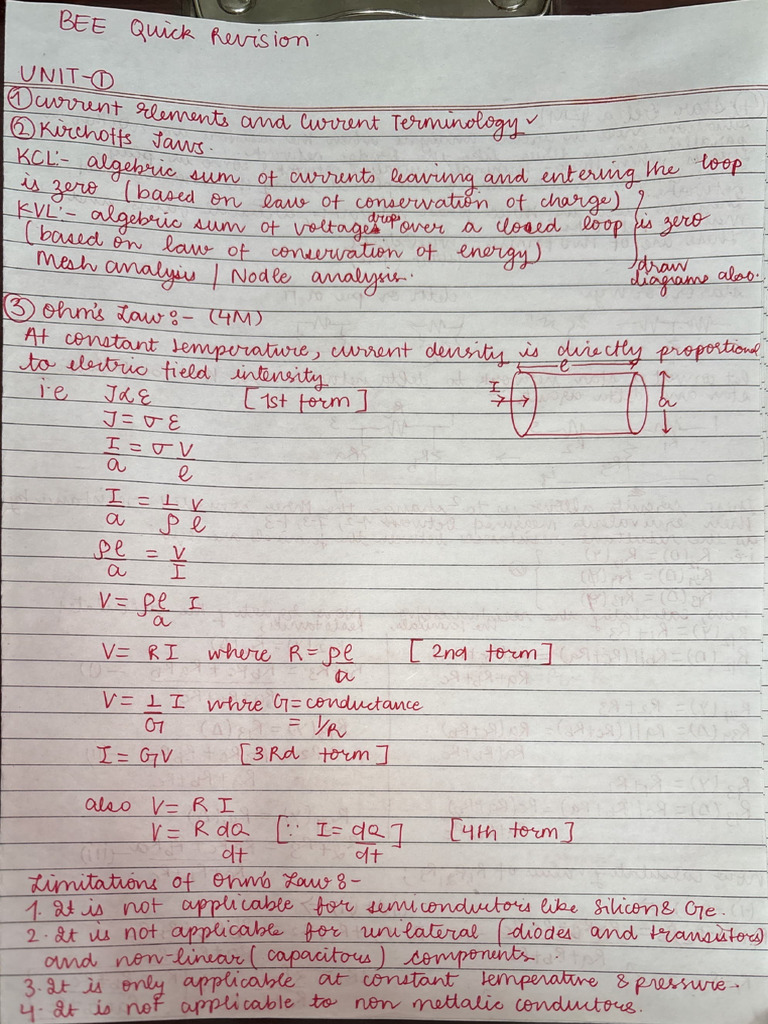 BEE Quick Revision
UNIT-①
① Current Elements and Current Terminology ✓
② Kirchoffs Laws.
KCL:- algebric sum of currents leaving and entering the loop
is zero (based on law of conservation of charge)
KVL:- algebric sum of voltages drop over a closed loop is zero
(based on law of conservation of energy)
Mesh analysis / Nodle analysis.
draw
diagrams also.
③ Ohm's Law:- (4M)
At constant temperature, current density is directly proportional
to electric field intensity
i.e J∝ε [1st form]
J=σε
I/a = σ V/l
I/a = 1/ρ V/l
ρl/a = V/I
V= ρl/a I
V= RI where R= ρl/a [2nd form]
V= 1/G I whre G=conductance
= 1/R
I=GV [3Rd form]
also V= RI
V= R dQ/dt [∵ I= dQ/dt] [4th form]
l
I
a
Limitations of Ohm's Law:-
1. It is not applicable for semiconductors like Silicon & Ge.
2. It is not applicable for unilateral (diodes and transistors)
and non-linear (capacitors) components.
3. It is only applicable at constant temperature & pressure.
4. It is not applicable to non metlalic conductors.